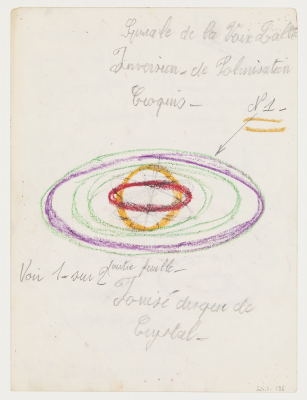 de la Voix Lactée
Inversion - de Polarisation
Croquis -
N°1 -
Voir 1 - sur 2
autre feuille -
Ionisé disque de
Crystal -